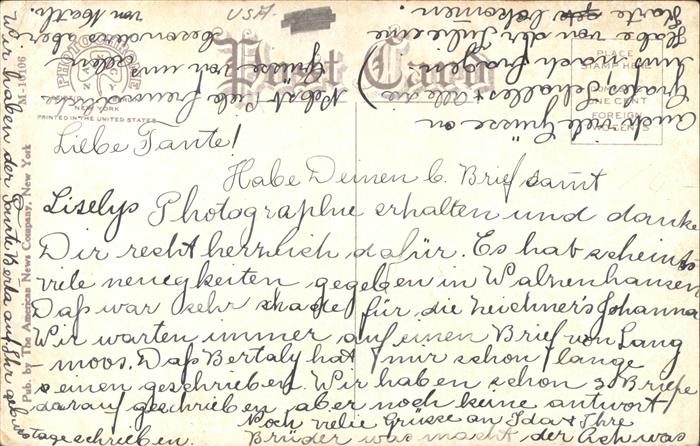 USA.
Post Card
PHOTOCHROME
NEW YORK
PRINTED IN THE UNITED STATES
PLACE
STAMP HERE
ONE CENT
FOREIGN
TWO CENTS
M-10106
Pub. by The American News Company, New York
Liebe Tante!
Habe Deinen l. Brief samt
Liselys Photographie erhalten und danke
Dir recht herzlich dafür. Es hab scheints
viele neuigkeiten gegeben in Walzenhausen
Daß war sehr schade für die Zeichner's Johanna
Wir warten immer auf einen Brief von Lang
moos. Daß Bertaly hat mir schon lange
einen geschrieben. Wir haben schon 3 Briefe
darauf geschrieben aber noch keine antwort
Noch viele Grüsse an Ida + Ihre
Brüder was macht der Esch was
Auch viele Grüsse an
uns nach fragen
Habe von der Julie eine
Karte bekommen.
Nebst viele freundlichen
Grüsse von uns allen
besonders aber
von
Wir haben der Berta auf Ihr geburts
tage schrieben.